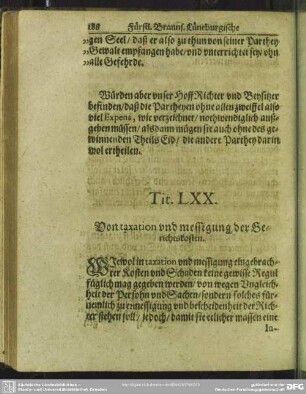 188 Fürstl. Brauns. Lüneburgische
„gen Seel / daß er also zu thun von seiner Parthey
„Gewalt empfangen habe / vnd vnterrichtet sey / ohn
„alle Gefehrde.
Würden aber vnser Hoff Richter vnd Beysitzer
befinden / daß die Partheyen ohne allen zweiffel also
viel Expens, wie verzeichnet / nothwendiglich auß-
geben müssen / alsdann mügen sie auch ohne des ge-
winnenden Theils Eyd / die andere Parthey darin
wol ertheilen.
Tit. LXX.
Von taxation vnd messigung der Ge-
richtskosten.
WJewol in taxation vnd messigung eingebrach-
ter Kosten vnd Schaden keine gewisse Regul
füglich mag gegeben werden / von wegen Vngleich-
heit der Persohn vnd Sachen / sondern solches für-
nemlich zu ermessigung vnd bescheidenheit der Rich-
ter stehen soll / jedoch / damit sie etlicher massen eine
In-